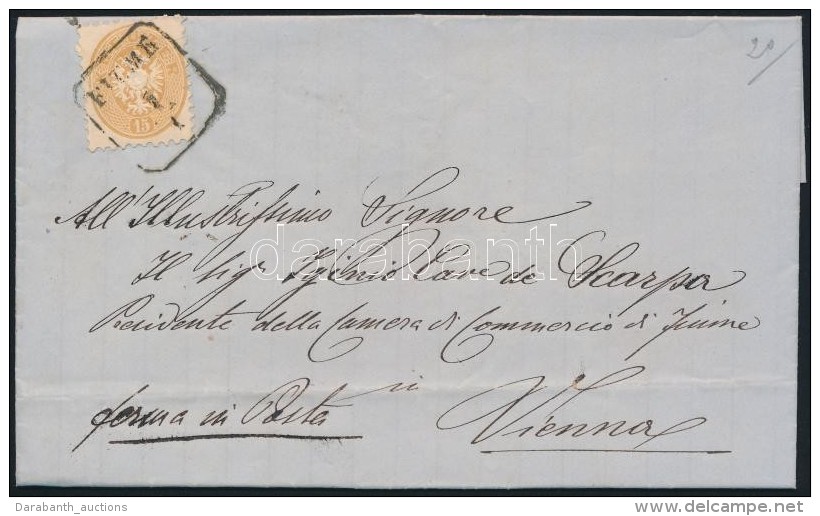 20/
FIUME
15
All'Illustrissimo Signore
Il Sigr Iginio Cav.e de Scarpa
Presidente della Camera di Commercio di Fiume
ferma in Posta in Vienna
darabanth
Darabanth_auctions
www.delcampe.net